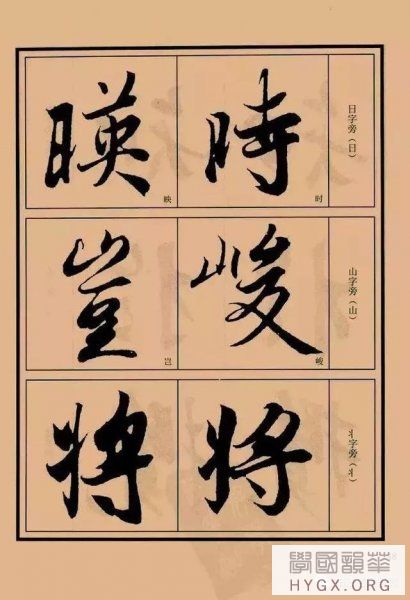 日字旁（日）
時
时
暎
映
山字旁（山）
峻
峻
豈
岂
丬字旁（丬）
將
將
學國韻華
HYGX.ORG